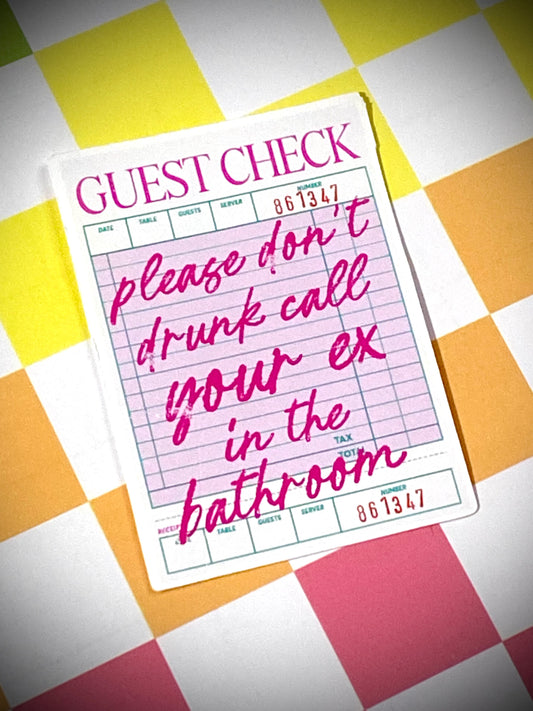 GUEST CHECK
DATE TABLE GUESTS SERVER NUMBER
861347
please don't
drunk call
your ex
in the
bathroom
TAX
TOTAL
TABLE GUESTS SERVER NUMBER
861347